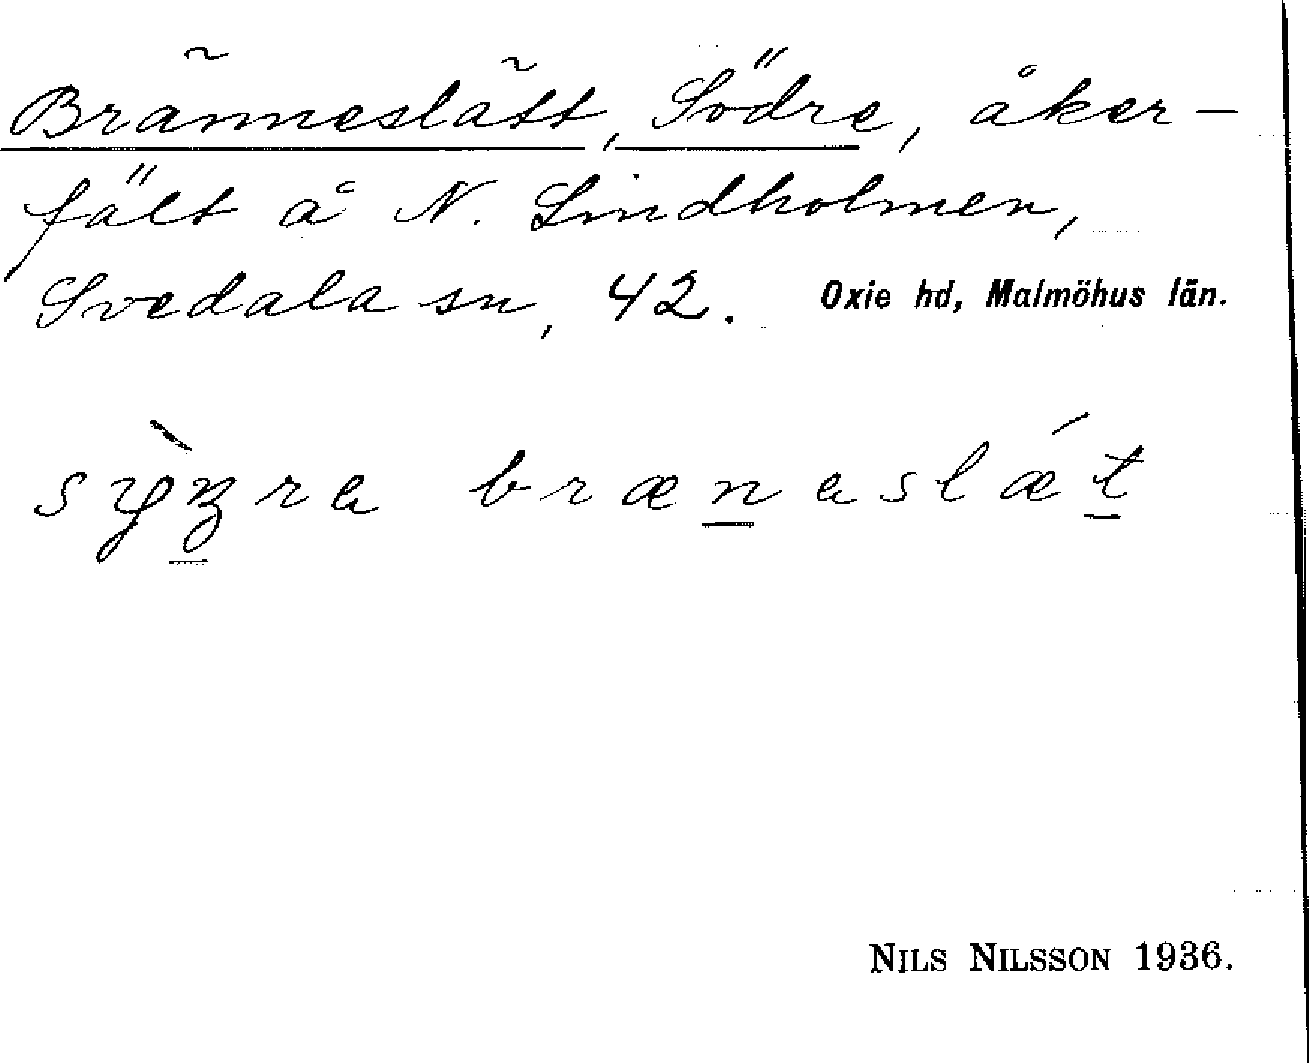 Bränneslätt, Södre, åker-
fält å N. Lindholmen,
Svedala sn, 42. Oxie hd, Malmöhus län.
brænaslǽt
NILS NILSSON 1936.